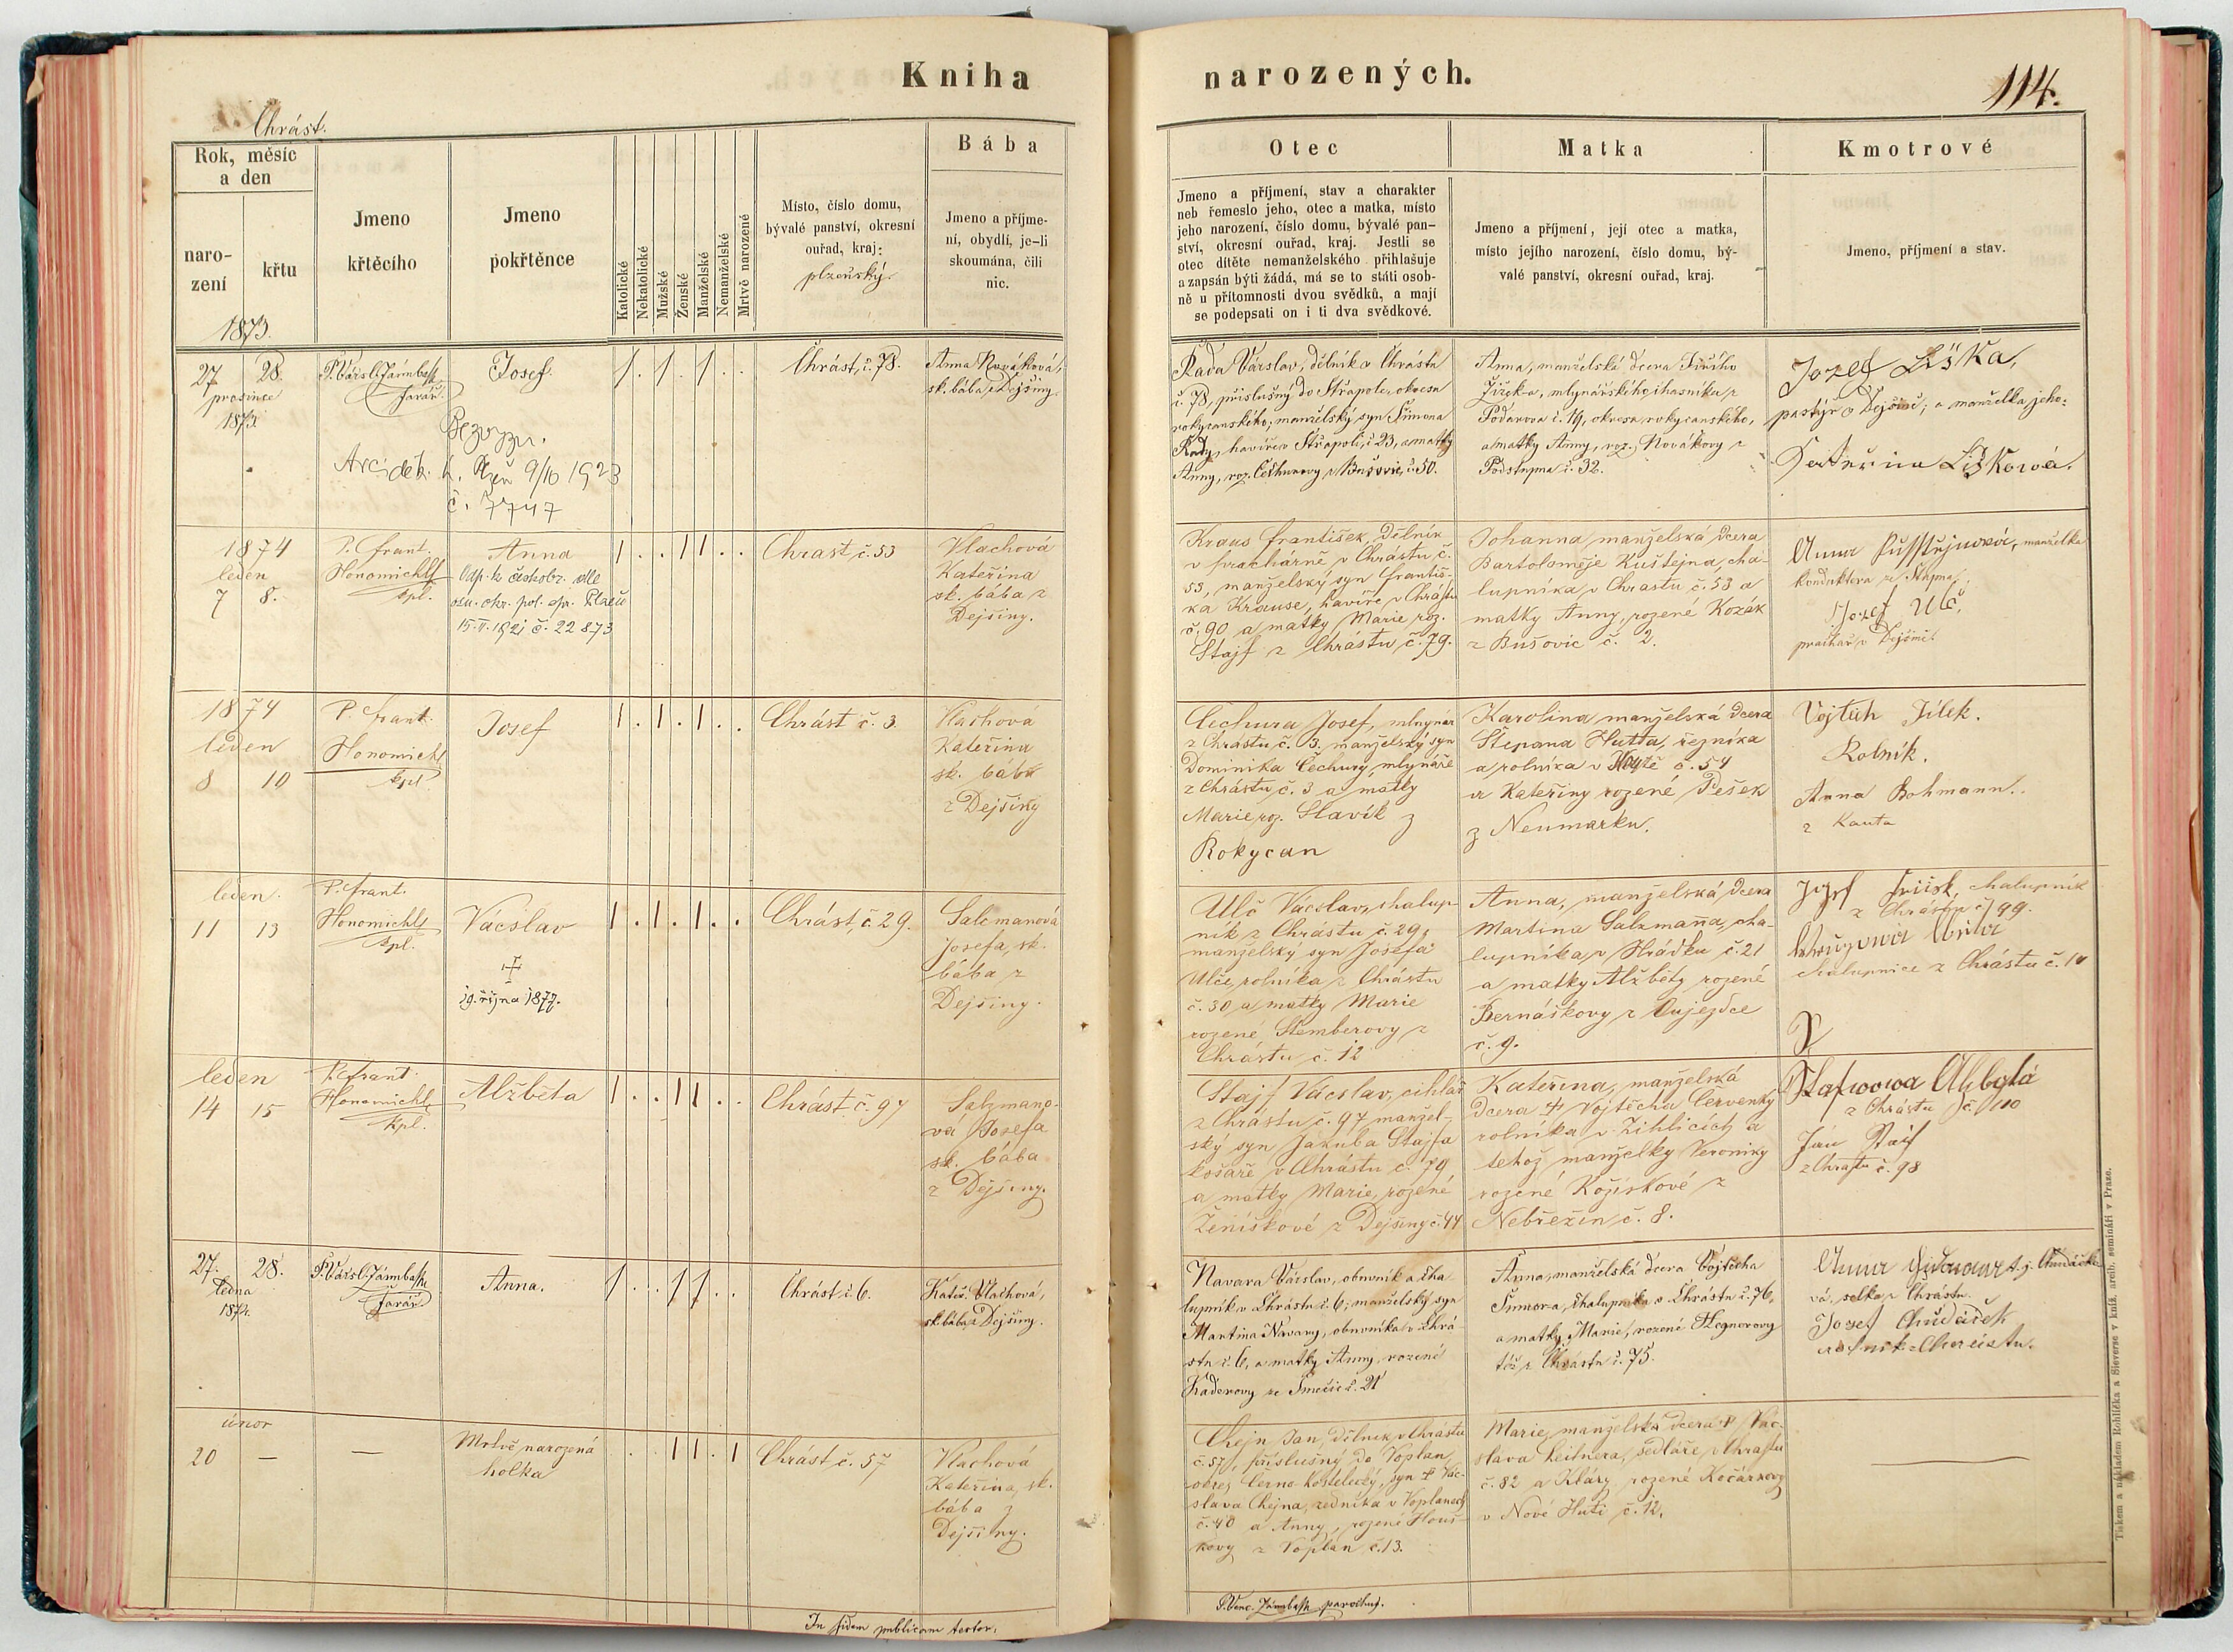 Kniha
narozených.
114.
Chrást.
Rok, měsíc
a den
naro-
zení
křtu
1873.
Jmeno
křtěcího
Jmeno
pokřtěnce
Katolické
Nekatolické
Mužské
Ženské
Manželské
Nemanželské
Mrtvě narozené
Místo, číslo domu,
bývalé panství, okresní
ouřad, kraj:
plzeňský.
Bába
Jmeno a příjme-
ní, obydlí, je-li
skoumána, čili
nic.
Otec
Jmeno a příjmení, stav a charakter
neb řemeslo jeho, otec a matka, místo
jeho narození, číslo domu, bývalé pan-
ství, okresní ouřad, kraj. Jestli se
otec dítěte nemanželského přihlašuje
a zapsán býti žádá, má se to státi osob-
ně u přítomnosti dvou svědků, a mají
se podepsati on i ti dva svědkové.
Matka
Jmeno a příjmení, její otec a matka,
místo jejího narození, číslo domu, bý-
valé panství, okresní ouřad, kraj.
Kmotrové
Jmeno, příjmení a stav.
27 28.
prosince
1873.
farář.
Josef.
9/10 1923
č. 7747
Chrást, č. 78.
Anna Nováková,
sk. bába z Dejšiny.
Rada Václav, dělník v Chrástu
č. 78, příslušný do Střapole, okresu
rokycanského; manželský syn Šimona
Rady, havíře v Střapoli, č. 23, a matky
Anny, roz. Čechurovy z Bušovic, č. 50.
Anna, manželská dcera Jiřího
a matky Anny, roz. Novákovy z
č. 32.
Jozef Liška,
pastýř v Dejšině; a manželka jeho:
Liškowá.
1874
leden
7 8.
P. Frant.
Honomichl
kpl.
Anna
Odp. k českobr. dle
osn. okr. pol. spr. Plzeň
15.II.1921 č. 22873
Chrast, č. 53
Vlachová
Kateřina
sk. bába z
Dejšiny.
Kraus František, Dělník
v prachárně v Chrástu č.
53, manželský syn Františ-
ka Krause, havíře v Chrástu
č. 90 a matky Marie roz.
Stajf z Chrástu č. 79.
Johanna manželská dcera
Bartoloměje Kuštejna, cha-
lupníka v Chrastu č. 53 a
matky Anny, rozené Kozák
z Bušovic č. 2.
Anna
manželka
Jozef Ulč,
v Dejšině.
1874
leden
8 10
P. Frant.
Honomichl
kpl.
Josef
Chrást č. 3
Vlachová
Kateřina
sk. bába
z Dejšiny
Čechura Josef, mlynář
z Chrástu č. 3. manželský syn
Dominika Čechury, mlynáře
z Chrástu č. 3 a matky
Marie roz. Slavík z
Rokycan
Karolina manželská dcera
Štěpana Hutta, řezníka
a rolníka v č. 54
a Kateřiny rozené Pešek
z Neumarku.
Vojtěch Jílek.
Rolník.
Anna Bohmann.
z Kauta
leden.
11 13
P. Frant.
Honomichl
kpl.
Václav
19. října 1877.
Chrást, č. 29.
Salcmanová
Josefa, sk.
bába z
Dejšiny.
Ulč Václav, chalup-
ník z Chrastu č. 29,
manželský syn Josefa
Ulče, rolníka z Chrástu
č. 30 a matky Marie
rozené Stemberovy z
Chrástu č. 12
Anna, manželská dcera
Martina Salzmanna, cha-
lupníka v Hrádku č. 21
a matky Alžběty rozené
Bernáškovy z Oujezdce
č. 9.
chalupník
z Chrástu č. 99.
chalupnice z Chrástu č. 10
leden
14 15
P. Frant.
Honomichl
kpl.
Alžběta
Chrást č. 97
Salzmano-
vá Josefa
sk. bába
z Dejšiny.
Stajf Václav, cihlář
z Chrástu č. 97 manžel-
ský syn Jakuba Stajfa
košaře v Chrástu č. 79
a matky Marie, rozené
Ženíškové z Dejšiny č. 44
Kateřina, manželská
dcera † Vojtěcha Červenký
rolníka v Žihlicích a
tehož manželky Veroniky
rozené Kožíškové z
Nebřezin, č. 8.
z Chrástu č. 110
Jan
z Chrástu č. 98
27. 28.
ledna
1874.
farář.
Anna.
Chrást č. 6.
Kateř. Vlachová,
sk. bába z Dejšiny.
Navara Václav, obuvník a cha-
lupník v Chrástu č. 6; manželský syn
Martina Navary, obuvníka v Chrá-
stu č. 6, a matky Anny, rozené
Kaderovy ze Smečic č. 21
Anna, manželská dcera Vojtěcha
chalupníka v Chrástu č. 76,
a matky Marie, rozené Hegnerovy
též z Chrástu č. 75.
Anna
t. j. Chudáčko-
vá, selka z Chrástu.
Josef Chudáček
rolník z Chrástu.
únor
20 —
—
Mrtvě narozená
holka
Chrást č. 57
Vlachová
Kateřina, sk.
bába z
Dejšiny.
Chejn Jan, Dělník v Chrástu
č. 57, příslušný do Voplan,
okres Černo-Kostelecký, syn † Vác-
slava Chejna, zedníka v Voplanech
č. 40 a Anny, rozené Houš-
kovy z Voplan č. 13.
Marie, manželská dcera † Vác-
slava Leitnera, sedláře v Chrastu
č. 82 a Kláry rozené Kočárkovy
v Nové Huti č. 12.
In fidem publicam testor.
P. Venc. parochus.
Tiskem a nákladem Rohlíčka a Sieverse v kníž. arcib. semináři v Praze.